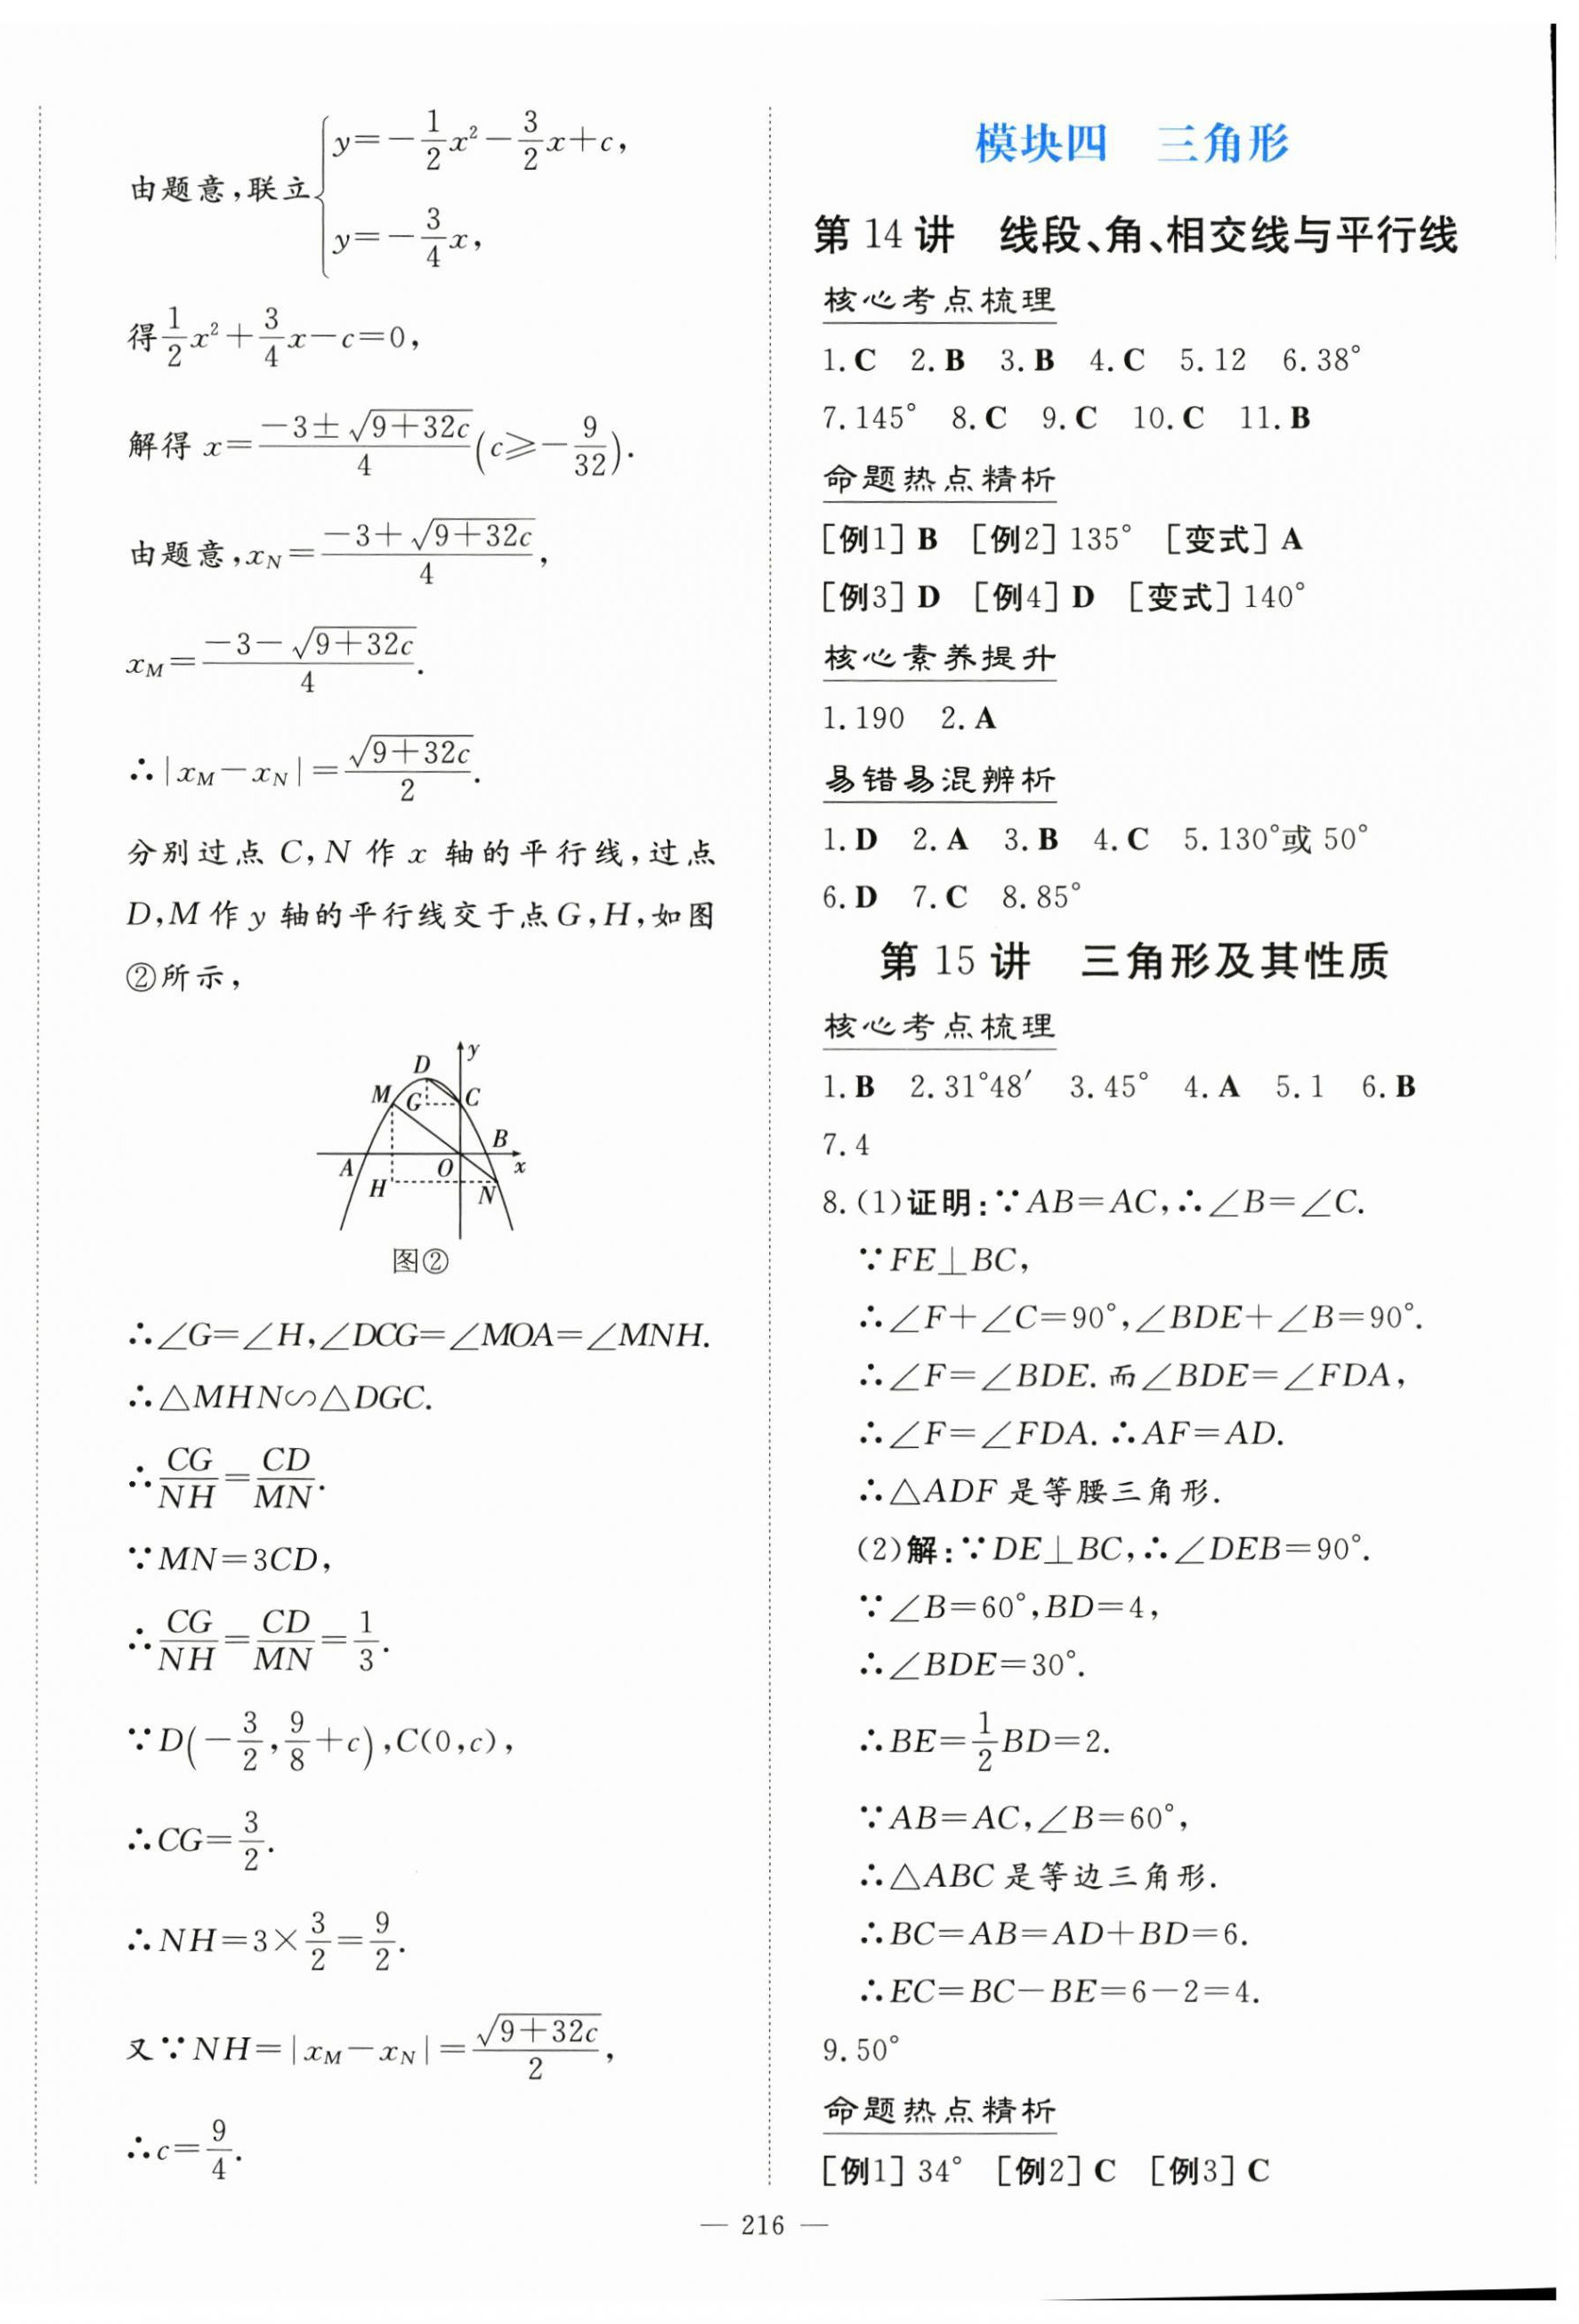 由题意,联立{y=-1/2x²-3/2x+c,
y=-3/4x,
得1/2x²+3/4x-c=0,
解得 x=(-3±√(9+32c))/4(c≥-9/32).
由题意,x_N=(-3+√(9+32c))/4,
x_M=(-3-√(9+32c))/4.
∴|x_M-x_N|=√(9+32c)/2.
分别过点 C,N 作 x 轴的平行线,过点
D,M 作 y 轴的平行线交于点 G,H,如图
②所示,
D y
M G C
B
A O x
H N
图②
∴∠G=∠H,∠DCG=∠MOA=∠MNH.
∴△MHN∽△DGC.
∴CG/NH=CD/MN.
∵MN=3CD,
∴CG/NH=CD/MN=1/3.
∵D(-3/2,9/8+c),C(0,c),
∴CG=3/2.
∴NH=3×3/2=9/2.
又∵NH=|x_M-x_N|=√(9+32c)/2,
∴c=9/4.
模块四 三角形
第 14 讲 线段、角、相交线与平行线
核心考点梳理
1.C 2.B 3.B 4.C 5.12 6.38°
7.145° 8.C 9.C 10.C 11.B
命题热点精析
[例1]B [例2]135° [变式]A
[例3]D [例4]D [变式]140°
核心素养提升
1.190 2.A
易错易混辨析
1.D 2.A 3.B 4.C 5.130°或 50°
6.D 7.C 8.85°
第 15 讲 三角形及其性质
核心考点梳理
1.B 2.31°48′ 3.45° 4.A 5.1 6.B
7.4
8.(1)证明:∵AB=AC,∴∠B=∠C.
∵FE⊥BC,
∴∠F+∠C=90°,∠BDE+∠B=90°.
∴∠F=∠BDE.而∠BDE=∠FDA,
∴∠F=∠FDA.∴AF=AD.
∴△ADF 是等腰三角形.
(2)解:∵DE⊥BC,∴∠DEB=90°.
∵∠B=60°,BD=4,
∴∠BDE=30°.
∴BE=1/2BD=2.
∵AB=AC,∠B=60°,
∴△ABC 是等边三角形.
∴BC=AB=AD+BD=6.
∴EC=BC-BE=6-2=4.
9.50°
命题热点精析
[例1]34° [例2]C [例3]C
— 216 —